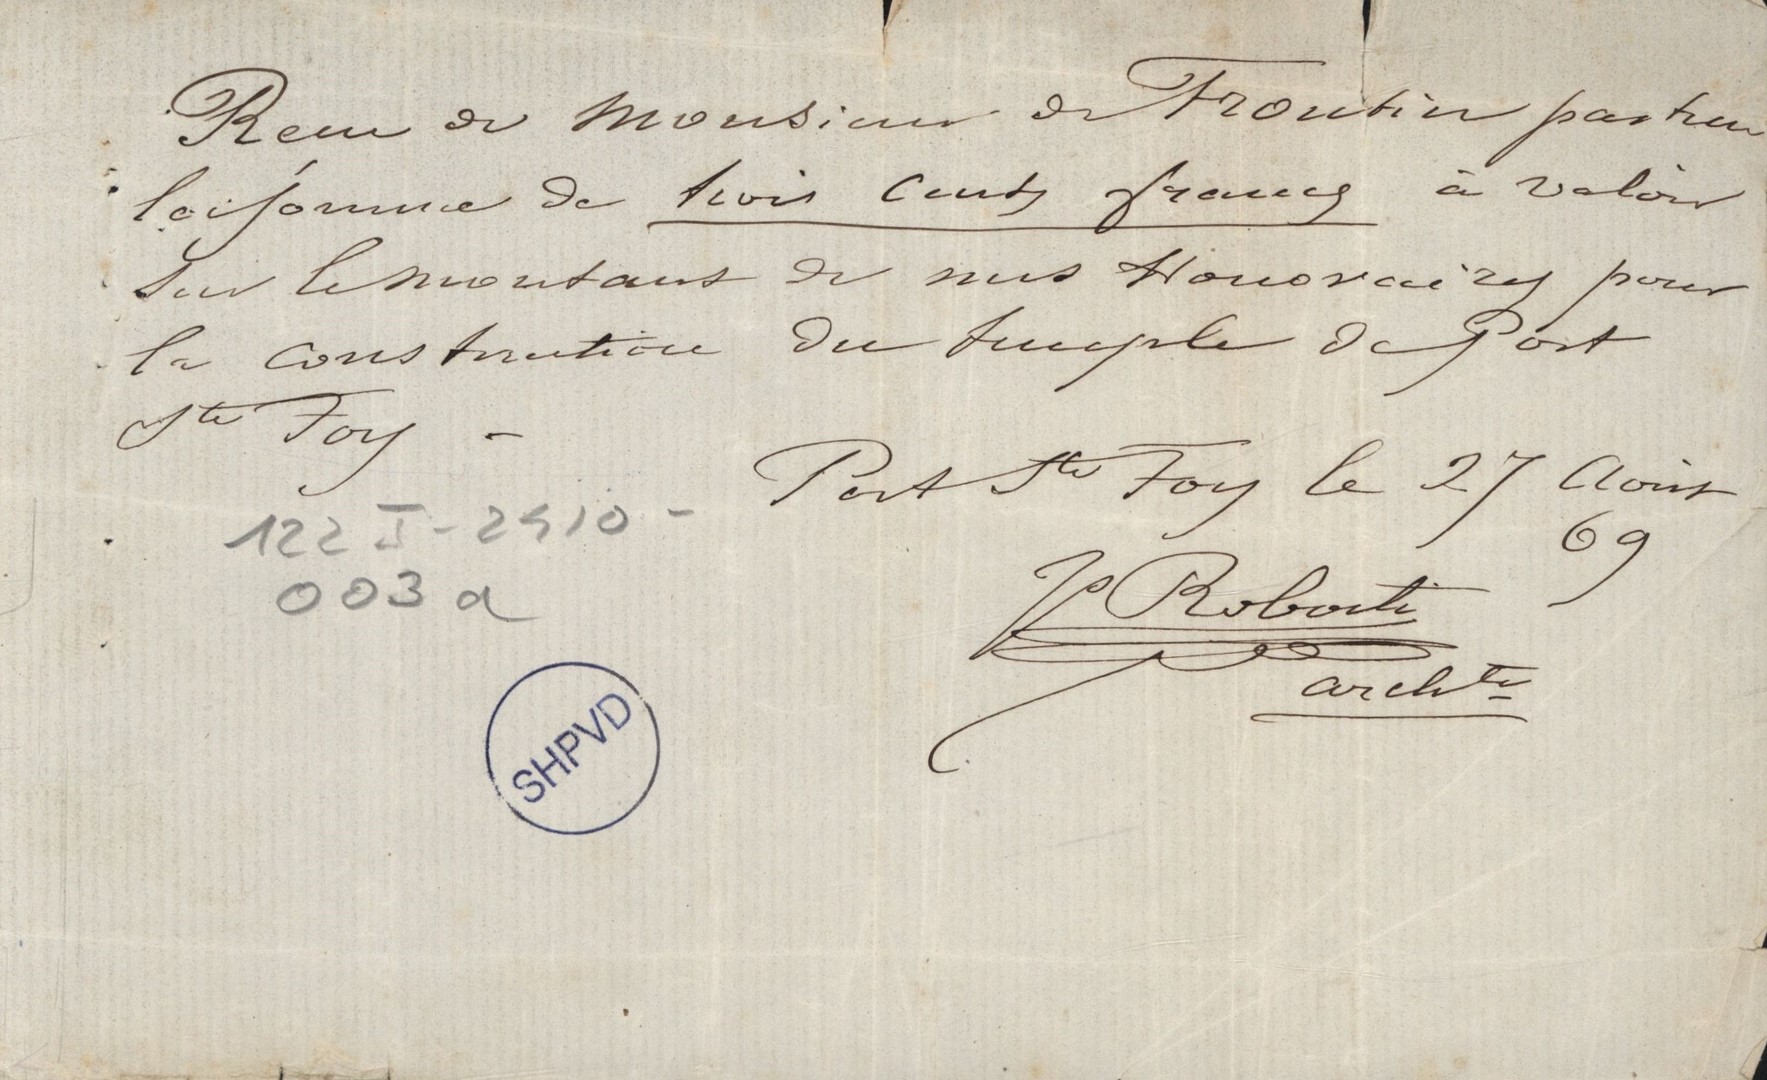 Recu de Monsieur de Frontin pasteur
la somme de trois cents francs à valoir
sur le montant de mes Honoraires pour
la construction du temple de Port
Ste Foy -
Port Ste Foy le 27 Aout
69
122 I - 2410 -
003 a
Roberti
archte
SHPVD